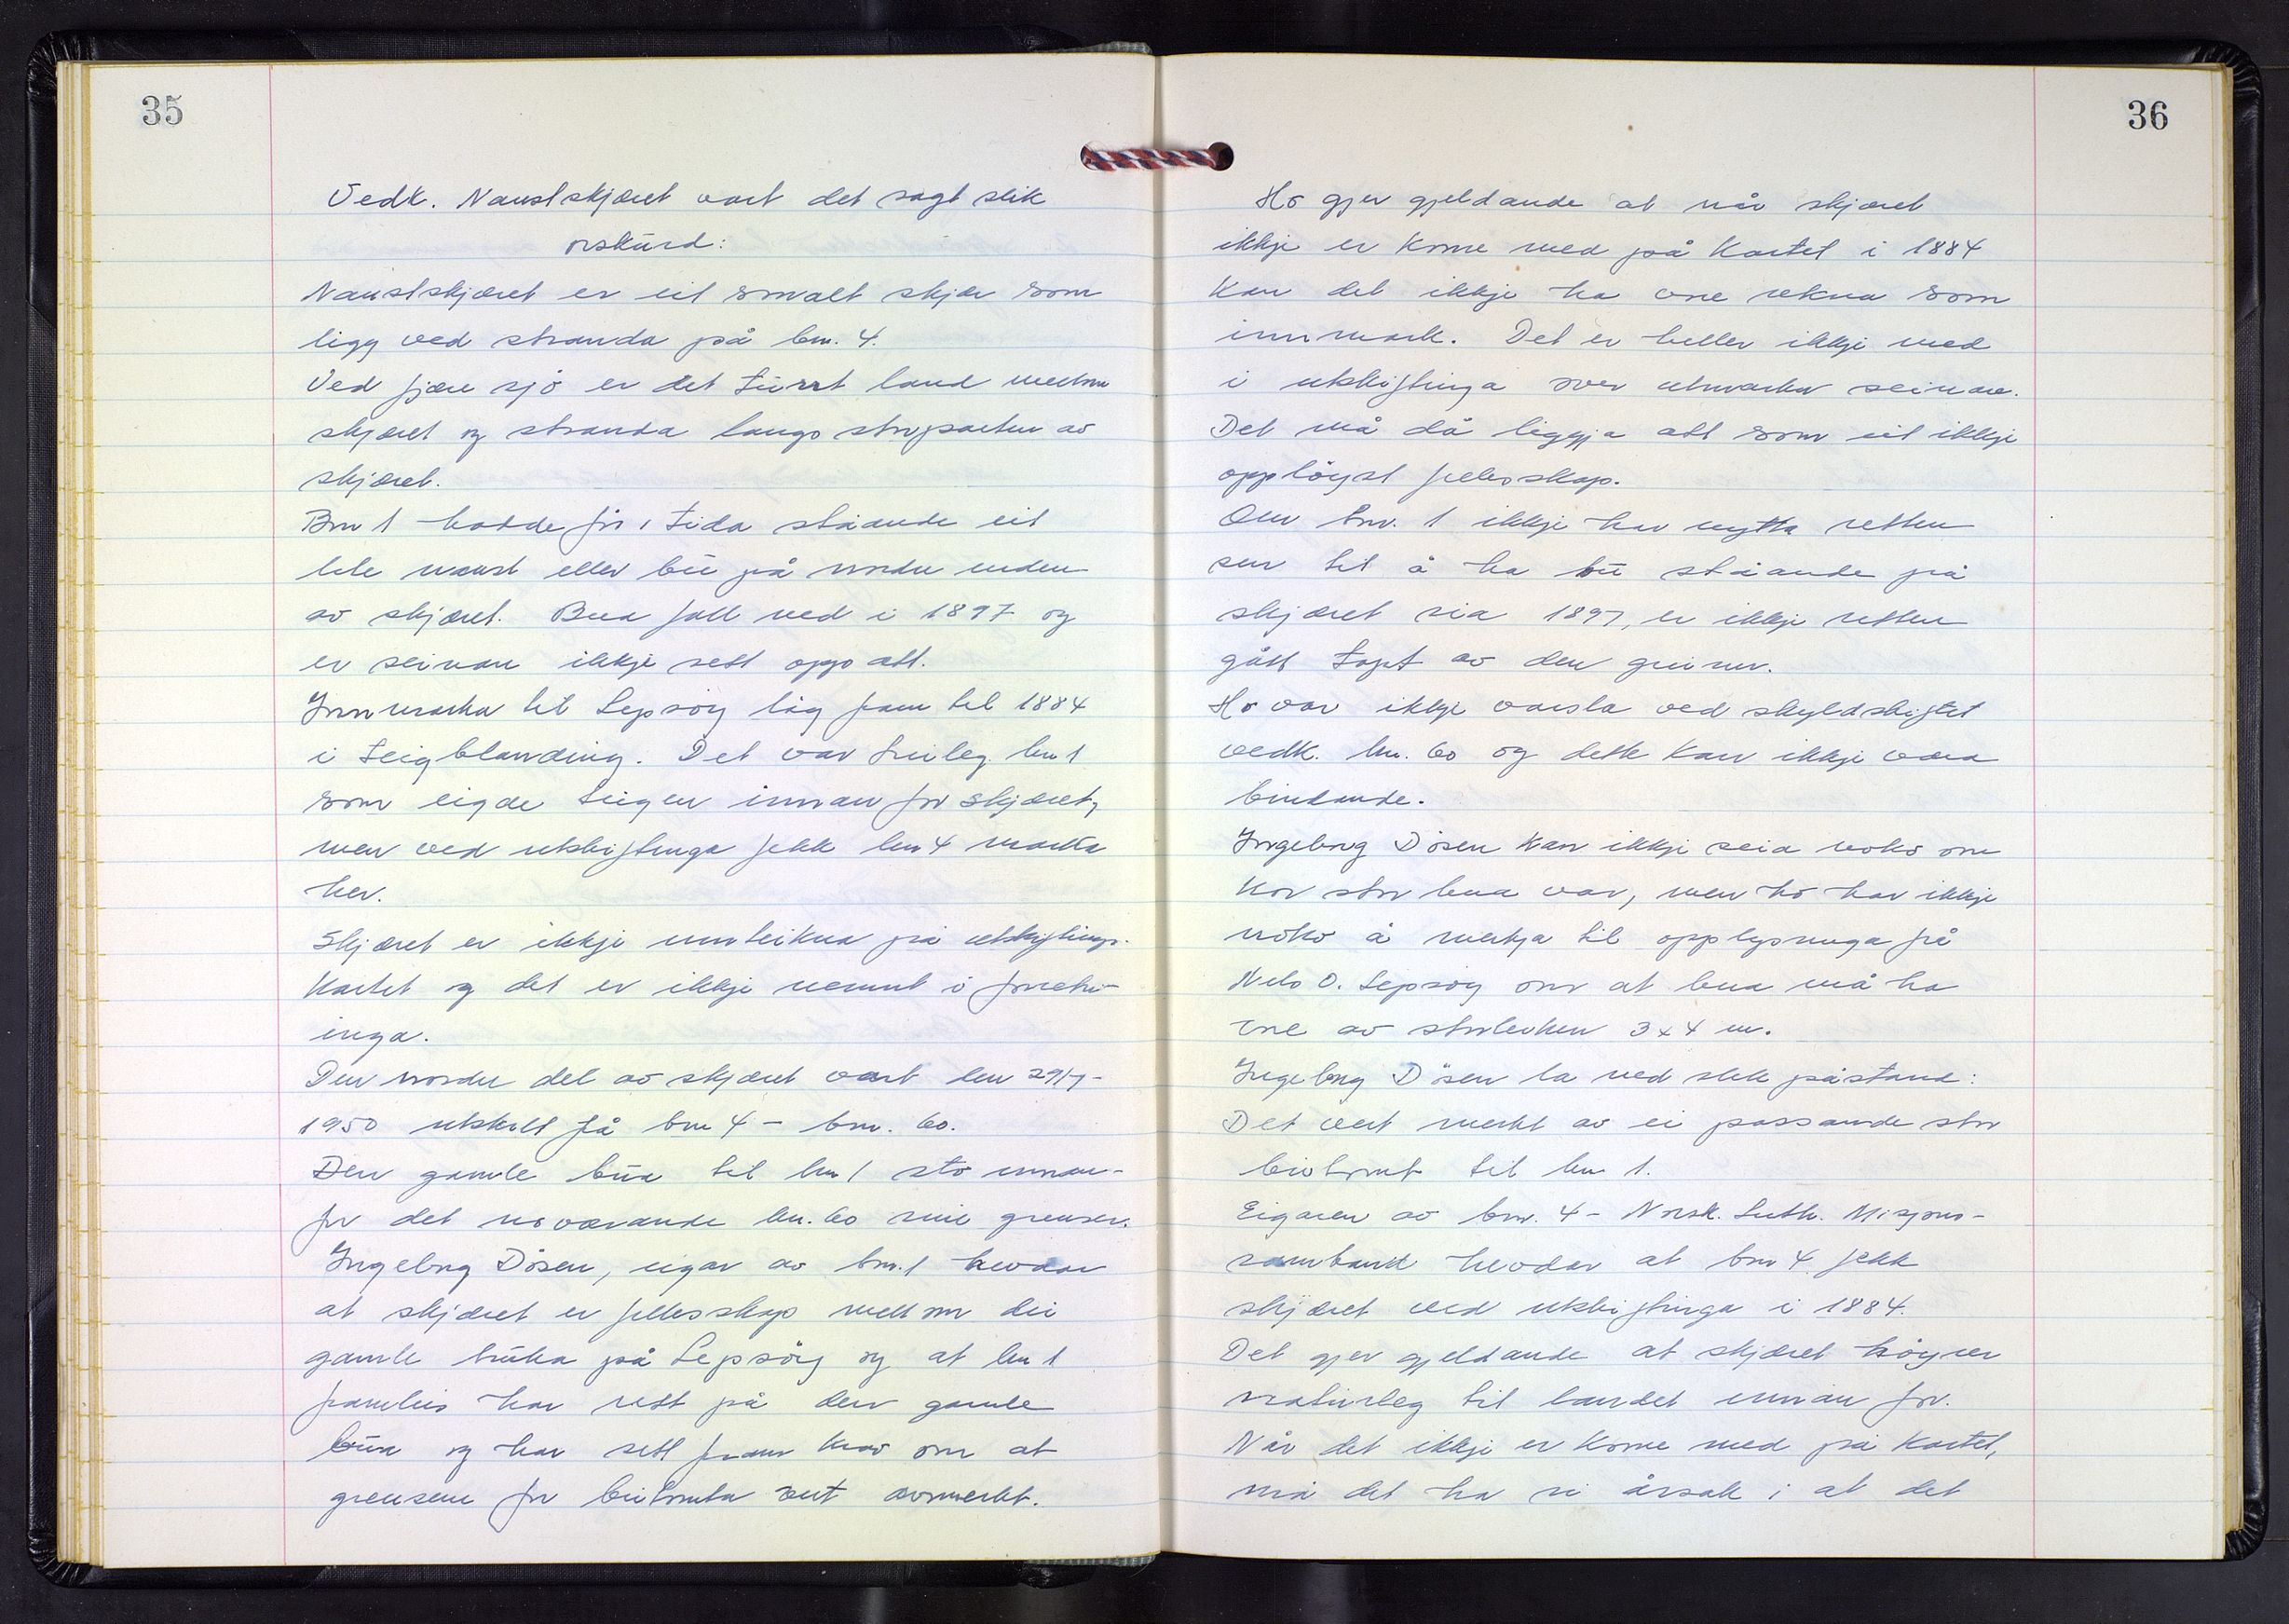 35
Vedk. Naustskjæret vart det sagt slik
orskurd:
Naustskjæret er eit smalt skjær som
ligg ved stranda på bnr. 4.
Ved fjøre sjø er det turrt land mellom
skjæret og stranda langs storparten av
skjæret.
Bnr 1 hadde för i tida ståande eit
lite naust eller bu på nordre enden
av skjæret. Bua fall ned i 1897 og
er seinare ikkje sett opp att.
Innmarka til Lepsöy låg fram til 1884
i teigblanding. Det var truleg bnr 1
som eigde teigen innan for skjæret,
men ved utskiftinga fekk bnr 4 marka
her.
Skjæret er ikkje innteikna på utskiftings-
kartet og det er ikkje nemnt i forretn-
inga.
Den nordre del av skjæret vart den 29/7-
1950 utskilt frå bnr 4 - bnr. 60.
Den gamle bua til bnr 1 sto innan-
for det noverande bnr. 60 sine grenser.
Ingeborg Dösen, eigar av bnr. 1 hevdar
at skjæret er fellesskap mellom dei
gamle bruka på Lepsöy og at bnr 1
framleis har rett på den gamle
bua og har sett fram krav om at
grensene for butomta vert avmerkt.
36
Ho gjer gjeldande at når skjæret
ikkje er kome med på kartet i 1884
kan det ikkje ha vore rekna som
innmark. Det er heller ikkje med
i utskiftinga over utmarka seinare.
Det må då liggja att som eit ikkje
opplöyst fellesskap.
Om bnr. 1 ikkje har nytta retten
sin til å ha bu ståande på
skjæret sia 1897, er ikkje retten
gått tapt av den grunn.
Ho var ikkje varsla ved skyldskiftet
vedk. bnr. 60 og dette kan ikkje vera
bindande.
Ingeborg Dösen kan ikkje seia noko om
kor stor bua var, men ho har ikkje
noko å merkja til opplysninga frå
Nils O. Lepsöy om at bua må ha
vore av storleiken 3x4 m.
Ingeborg Dösen la ned slik påstand:
Det vert merkt av ei passande stor
butomt til bnr 1.
Eigaren av bnr. 4 - Norsk. Luth. Misjons-
samband hevdar at bnr 4 fekk
skjæret ved utskiftinga i 1884.
Det gjer gjeldande at skjæret höyrer
naturleg til landet innan for.
Når det ikkje er kome med på kartet,
må det ha si årsak i at det